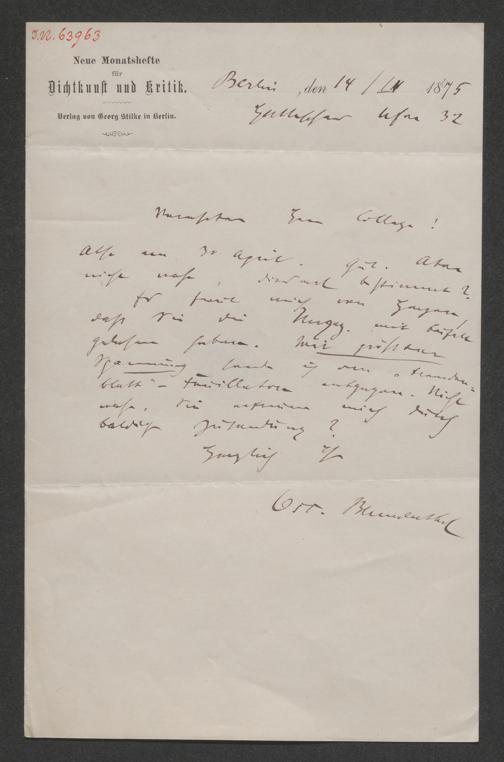 I.N. 63963
Neue Monatshefte
für
Dichtkunst und Kritik.
Verlag von Georg Stilke in Berlin.
Berlin, den 14/IV 1875
Ufer 32
Verehrter Herr College!
Also am 30 April. Gut. Aber
nicht wahr, diesmal bestimmt?
Es freut mich von Herzen,
daß Sie die mit
gelesen haben. Mit größter
Spannung sehe ich den "Fremden-
blatt"-Feuilleton entgegen. Nicht
wahr, Sie erfreuen mich durch
baldige Zusendung?
Herzlich Ihr
Osc. Blumenthal